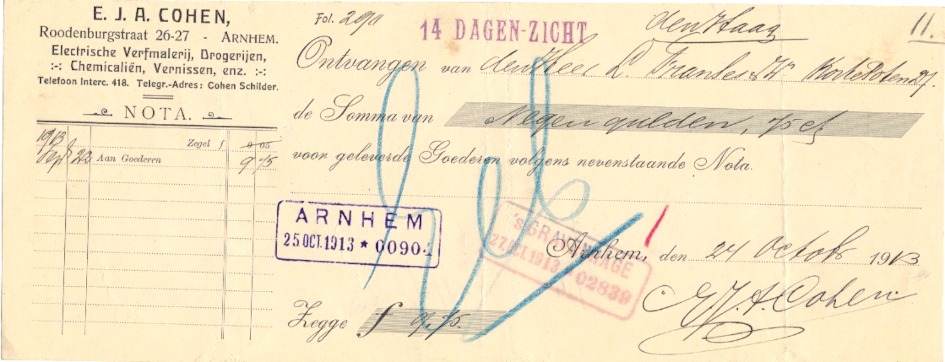 E. J. A. COHEN,
Roodenburgstraat 26-27 - ARNHEM.
Electrische Verfmalerij, Drogerijen,
:-: Chemicaliën, Vernissen, enz. :-:
Telefoon Interc. 418. Telegr.-Adres: Cohen Schilder.
NOTA.
1913 Zegel f 0 05
Sept 22 Aan Goederen 9 75
Fol. 290
14 DAGEN-ZICHT
den Haag
11.-
Ontvangen van den Heer L.
de Somma van Negen gulden, 75 ct
voor geleverde Goederen volgens nevenstaande Nota.
ARNHEM
25 OCT. 1913 * 00904
's GRAVENHAGE
27 OCT. 1913 * 02839
Arnhem, den 24 Octob 1913
Zegge f 9,75.
E.J.A. Cohen